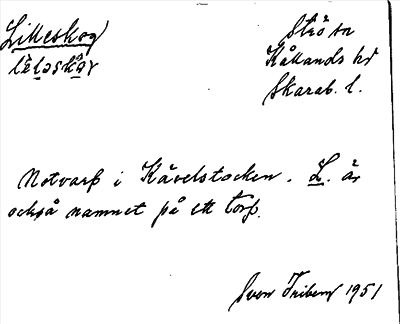 Lilleskog
Strö sn
lìləskὰ̣γ
Kållands hd
Skarab. l.
Notvarp i Kåvelstocken. L. är
också namnet på ett torp.
Sven Friberg 1951